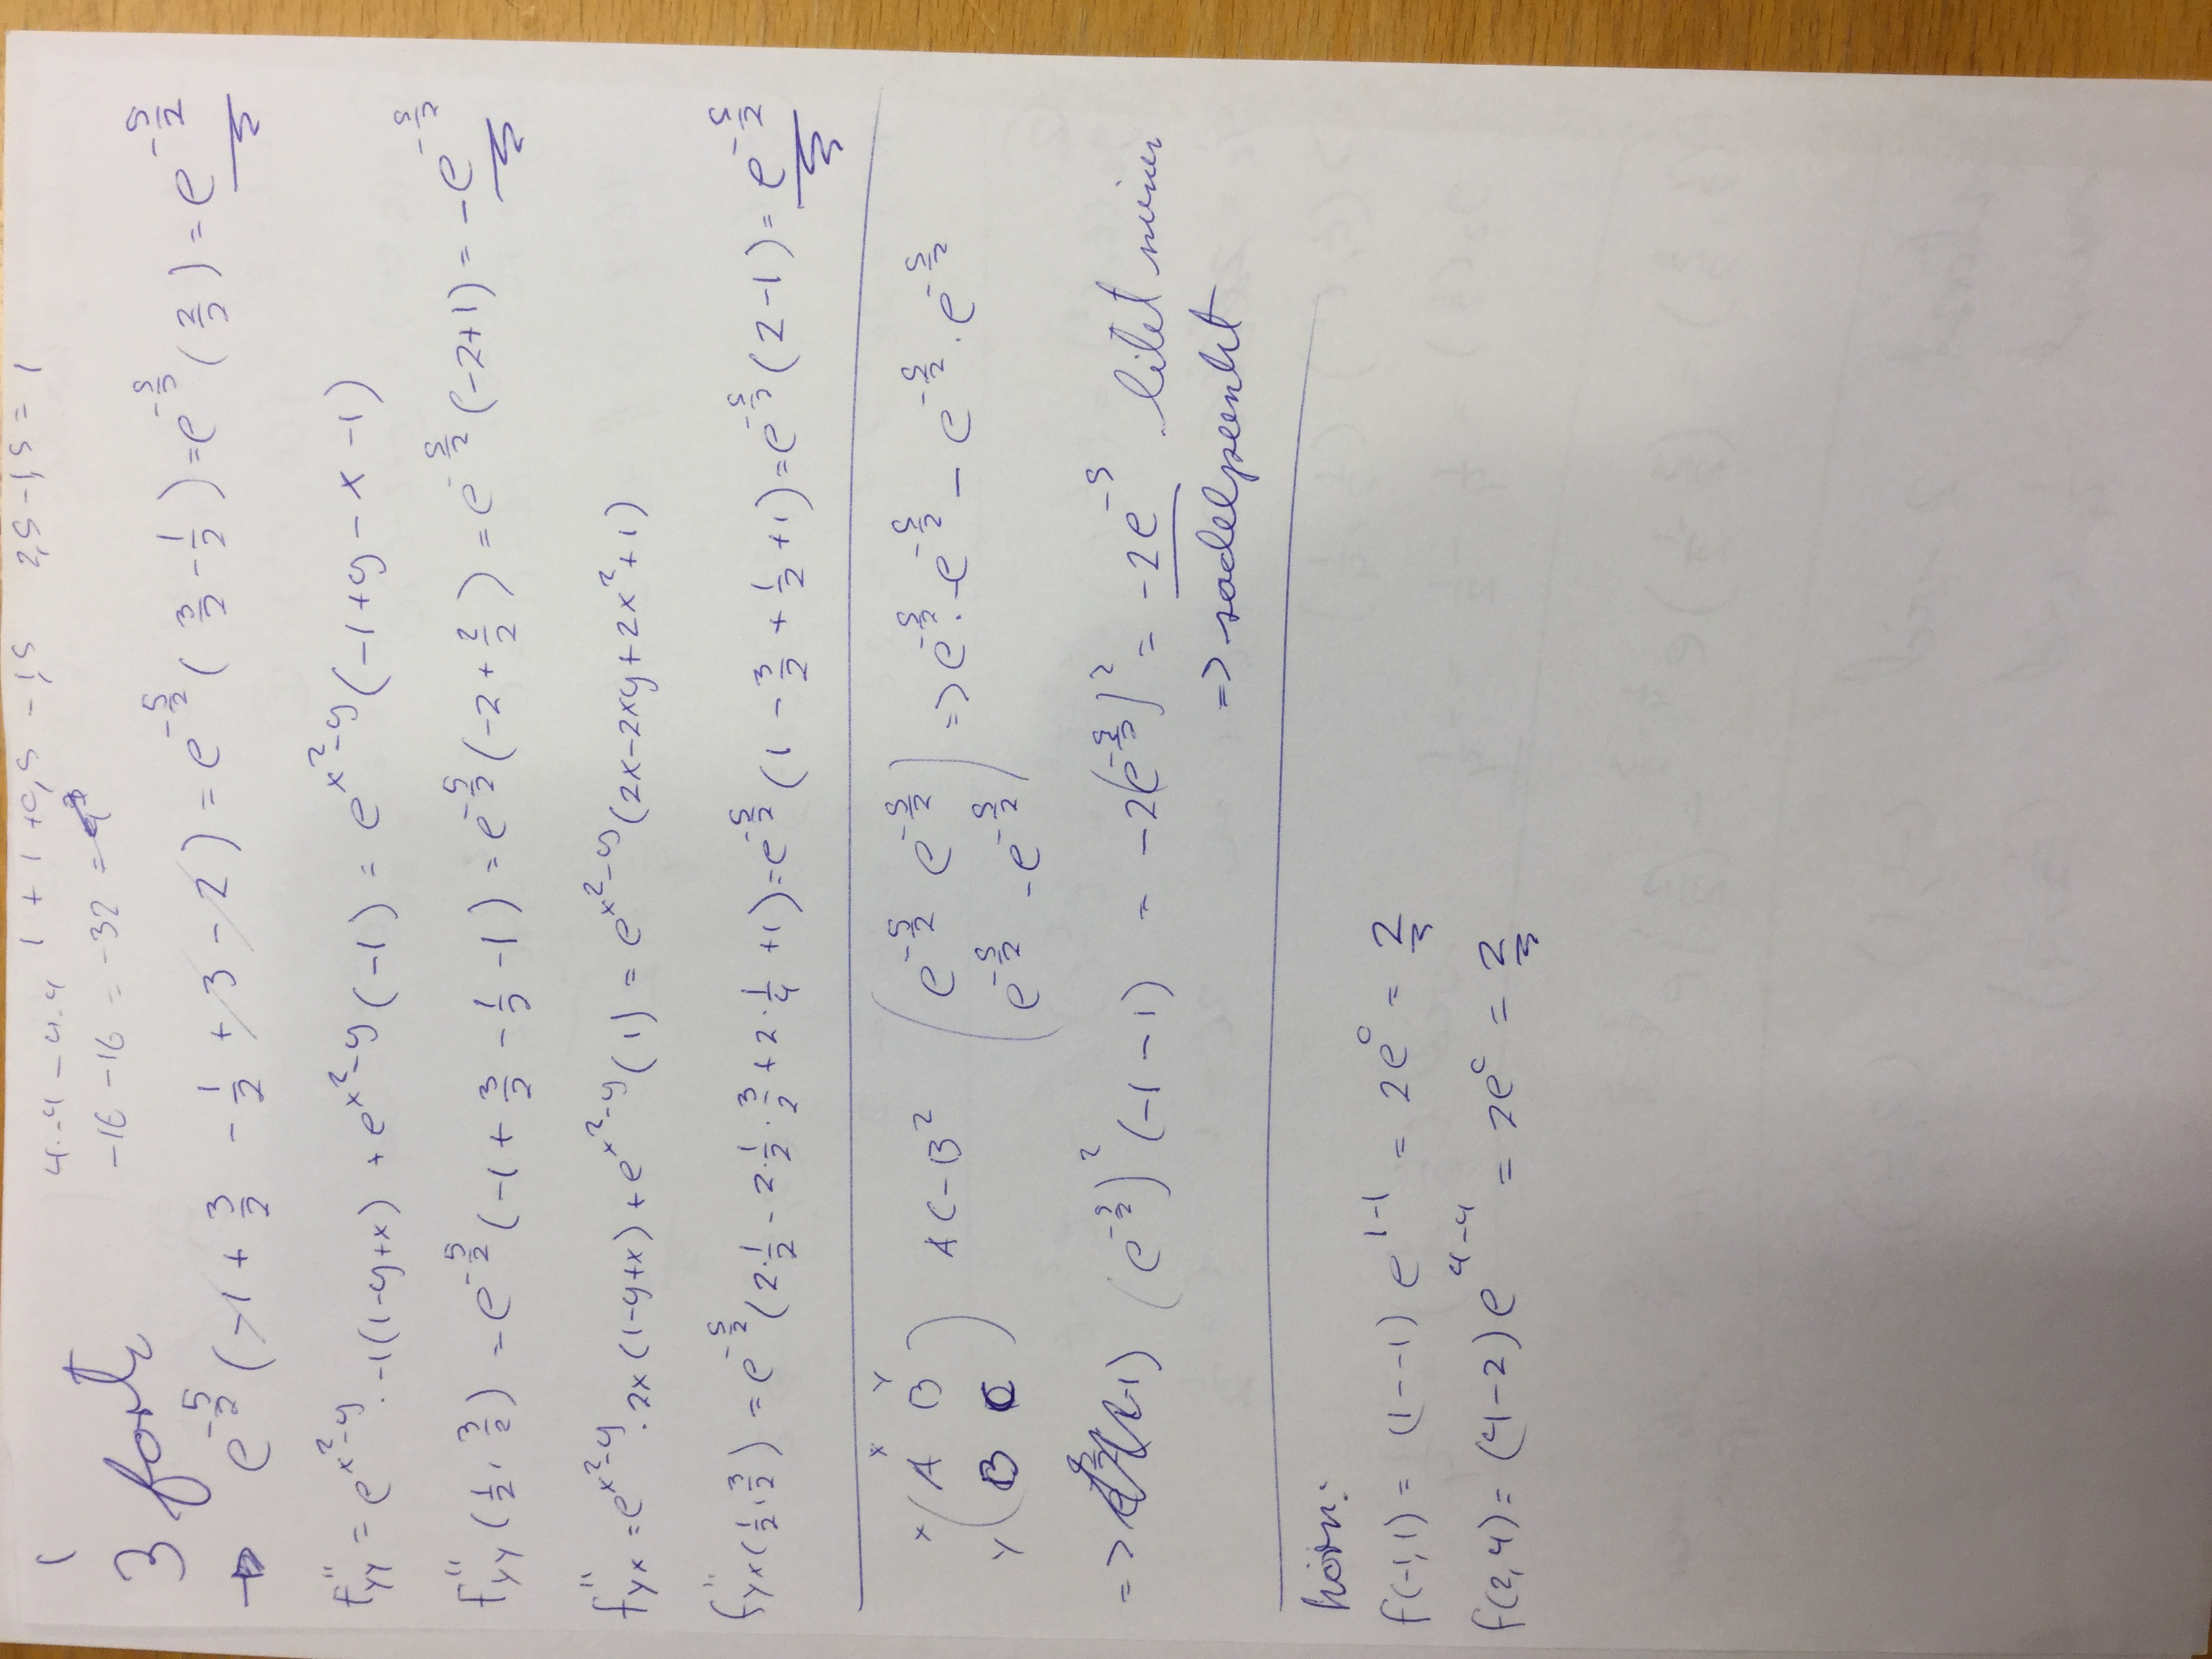 1
1 + 1 + 0,5 - 1,5   2,5 - 1,5 = 1
4·-4 - 4·4
-16 - 16 = -32
3 forts
→ e^{-5/2} (-1 + 3/2 - 1/2 + 3 - 2) = e^{-5/2} (3/2 - 1/2) = e^{-5/2} (2/2) = e^{-5/2}
f''yy = e^{x²-y} · -1(1-y+x) + e^{x²-y} (-1) = e^{x²-y} (-1+y-x-1)
f''yy (1/2, 3/2) = e^{-5/2} (-1 + 3/2 - 1/2 - 1) = e^{-5/2} (-2 + 2/2) = e^{-5/2} (-2+1) = -e^{-5/2}
f''yx = e^{x²-y} · 2x(1-y+x) + e^{x²-y} (1) = e^{x²-y} (2x-2xy+2x²+1)
f''yx (1/2, 3/2) = e^{-5/2} (2·1/2 - 2·1/2·3/2 + 2·1/4 + 1) = e^{-5/2} (1 - 3/2 + 1/2 + 1) = e^{-5/2} (2-1) = e^{-5/2}
x y
x (A B)   AC-B²   (e^{-5/2} e^{-5/2}) => e^{-5/2} · -e^{-5/2} - e^{-5/2} · e^{-5/2}
y (B C)   (e^{-5/2} -e^{-5/2})
=> (e^{-5/2})² (-1-1) = -2(e^{-5/2})² = -2e^{-5} litet minus
=> sadelpunkt
hörn:
f(-1,1) = (1--1) e^{1-1} = 2e^0 = 2
f(2,4) = (4-2) e^{4-4} = 2e^0 = 2